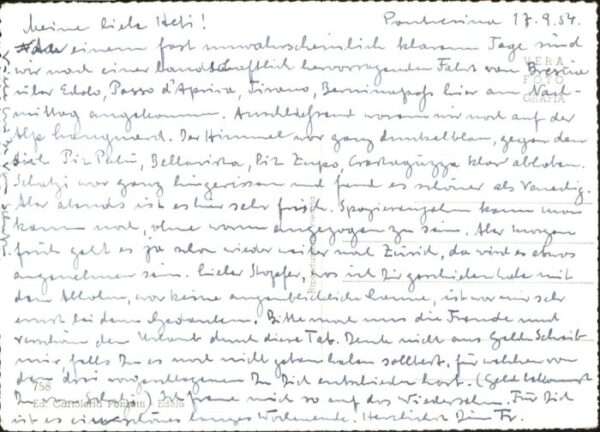 Meine liebe Heti! Pontresina 17.9.54.
Nach einem fast unwahrscheinlich klaren Tage sind
wir nach einer landschaftlich hervorragenden Fahrt von Brescia
über Edolo, Passo d'Aprica, Tirano, Berninapass hier am Nach-
mittag angekommen. Anschliessend waren wir noch auf der
Alp Languard. Der Himmel war ganz dunkelblau, gegen den
sich Piz Palü, Bellavista, Piz Zupo, Crastagüzza klar abhoben.
Schatzi war ganz hingerissen und fand es schöner als Venedig.
Aber abends ist es hier sehr frisch. Spazierengehen kann man
kaum noch, ohne warm angezogen zu sein. Aber morgen
früh geht es ja schon wieder weiter nach Zürich, da wird es etwas
angenehmer sein. Lieber, was ich Dir geschrieben habe mit
dem, war keine augenblickliche Laune, ist war mir sehr
ernst bei dem Gedanken. Bitte mach uns die Freude und
den Urlaub durch diese Tat. Denk nicht ans Geld. Schreib
mir, falls Du es noch nicht getan haben solltest, für welchen von
den drei Du Dich entschieden hast. (Geld bekommst
Du von Schatzi) Ich freue mich so auf das Wiedersehen. Für Dich
ist es ein schönes langes Wochenende. Herzlichst Dein Fr.
VERA
FOTO
GRAFIA
758
Ed.